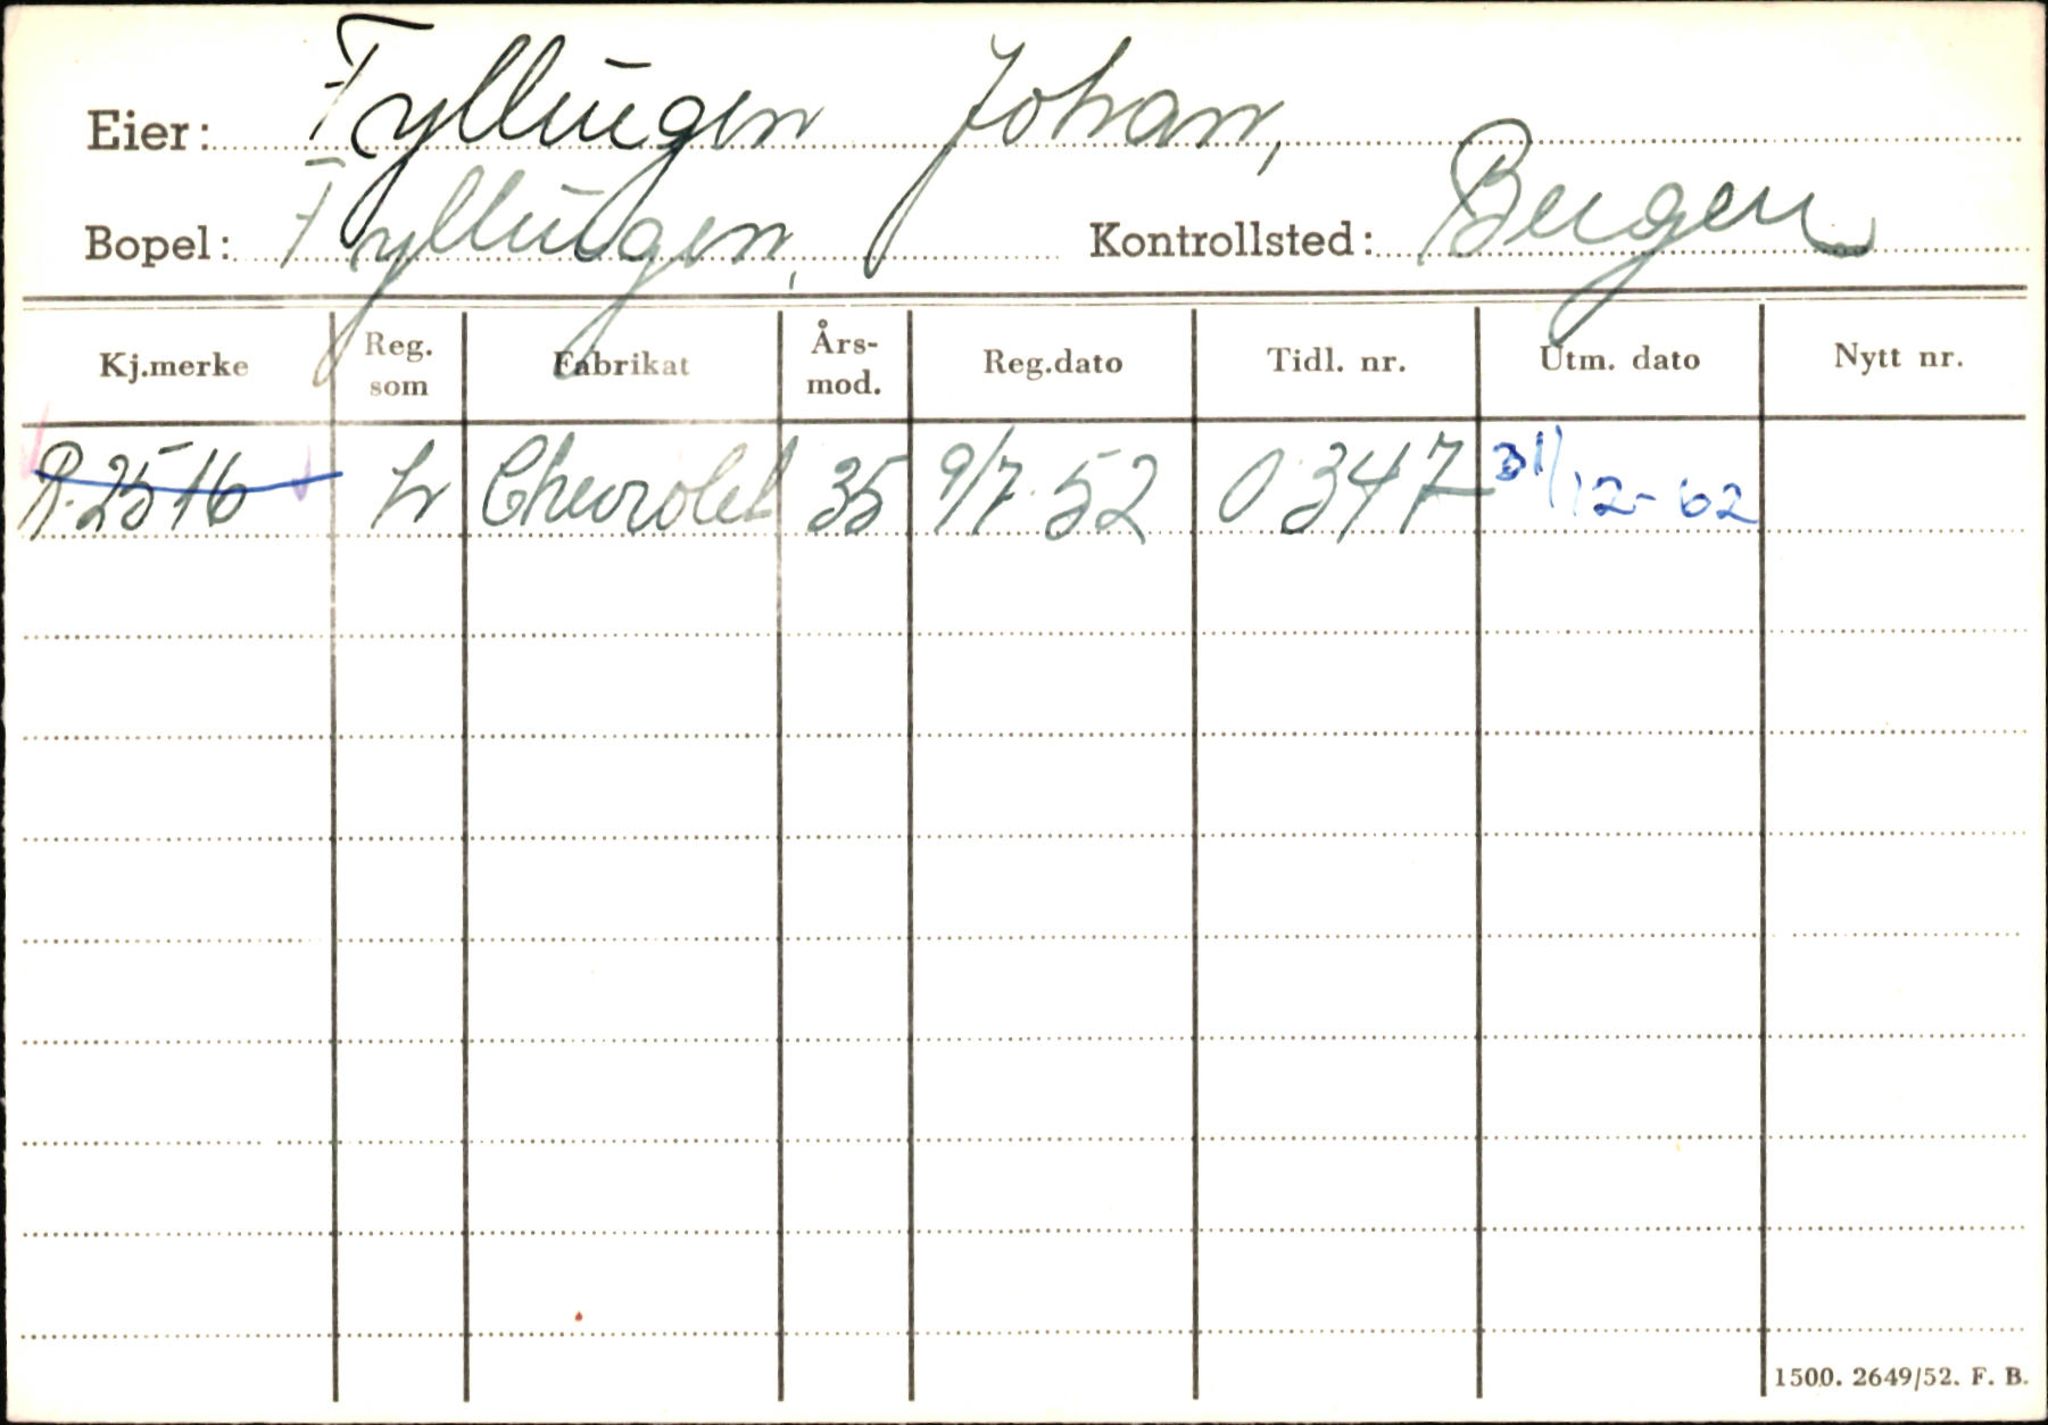 Eier: Fyllingen Johan,
Bopel: Fyllingen, Kontrollsted: Bergen
Kj.merke Reg. som Fabrikat Års-mod. Reg.dato Tidl. nr. Utm. dato Nytt nr.
R-2516 Chevrolet 35 9/7-52 0347 31/12-62
1500. 2649/52. F. B.